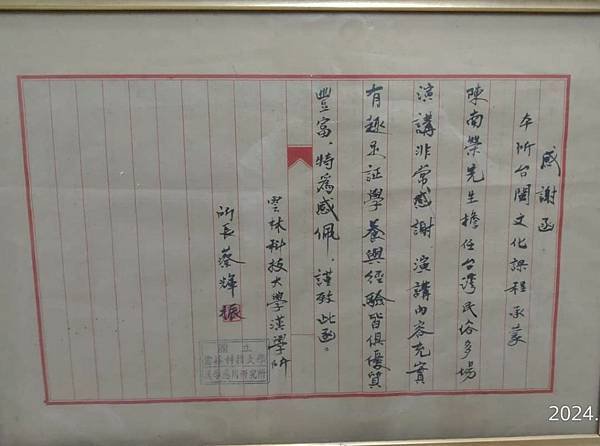 感謝函
本所台閩文化課程承蒙
陳南榮先生擔任台灣民俗多場
演講非常感謝 演講內容充實
有趣足証學養與經驗皆俱優質
豐富、特為感佩、謹致此函。
雲林科技大學漢學所
所長 蔡輝振
國立
雲林科技大學
漢學應用研究所
2024.